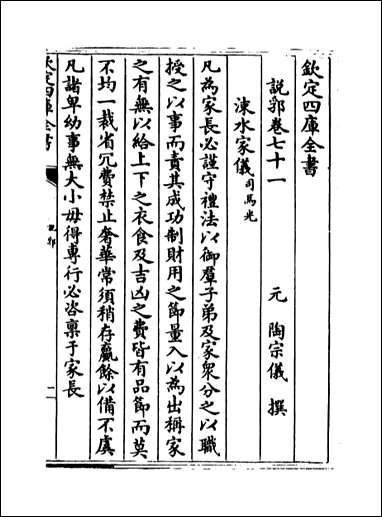 欽定四庫全書
說郛卷七十一
元 陶宗儀 撰
涑水家儀司馬光
凡為家長必謹守禮法以御羣子弟及家衆分之以職
授之以事而責其成功制財用之節量入以為出稱家
之有無以給上下之衣食及吉凶之費皆有品節而莫
不均一裁省冗費禁止奢華常須稍存贏餘以備不虞
凡諸卑幼事無大小毋得專行必咨稟于家長
欽定四庫全書
說郛